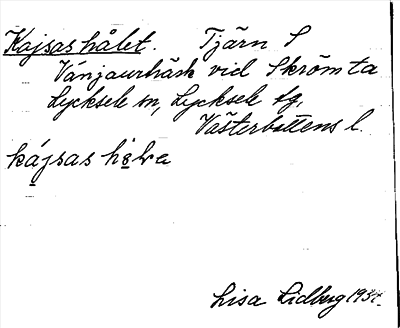 Kajsas hålet. Tjärn S
Vänjaurbäck vid Skrömta
Lycksele sn, Lycksele tg,
Västerbottens l.
kajsas hålra
Lisa Lidberg